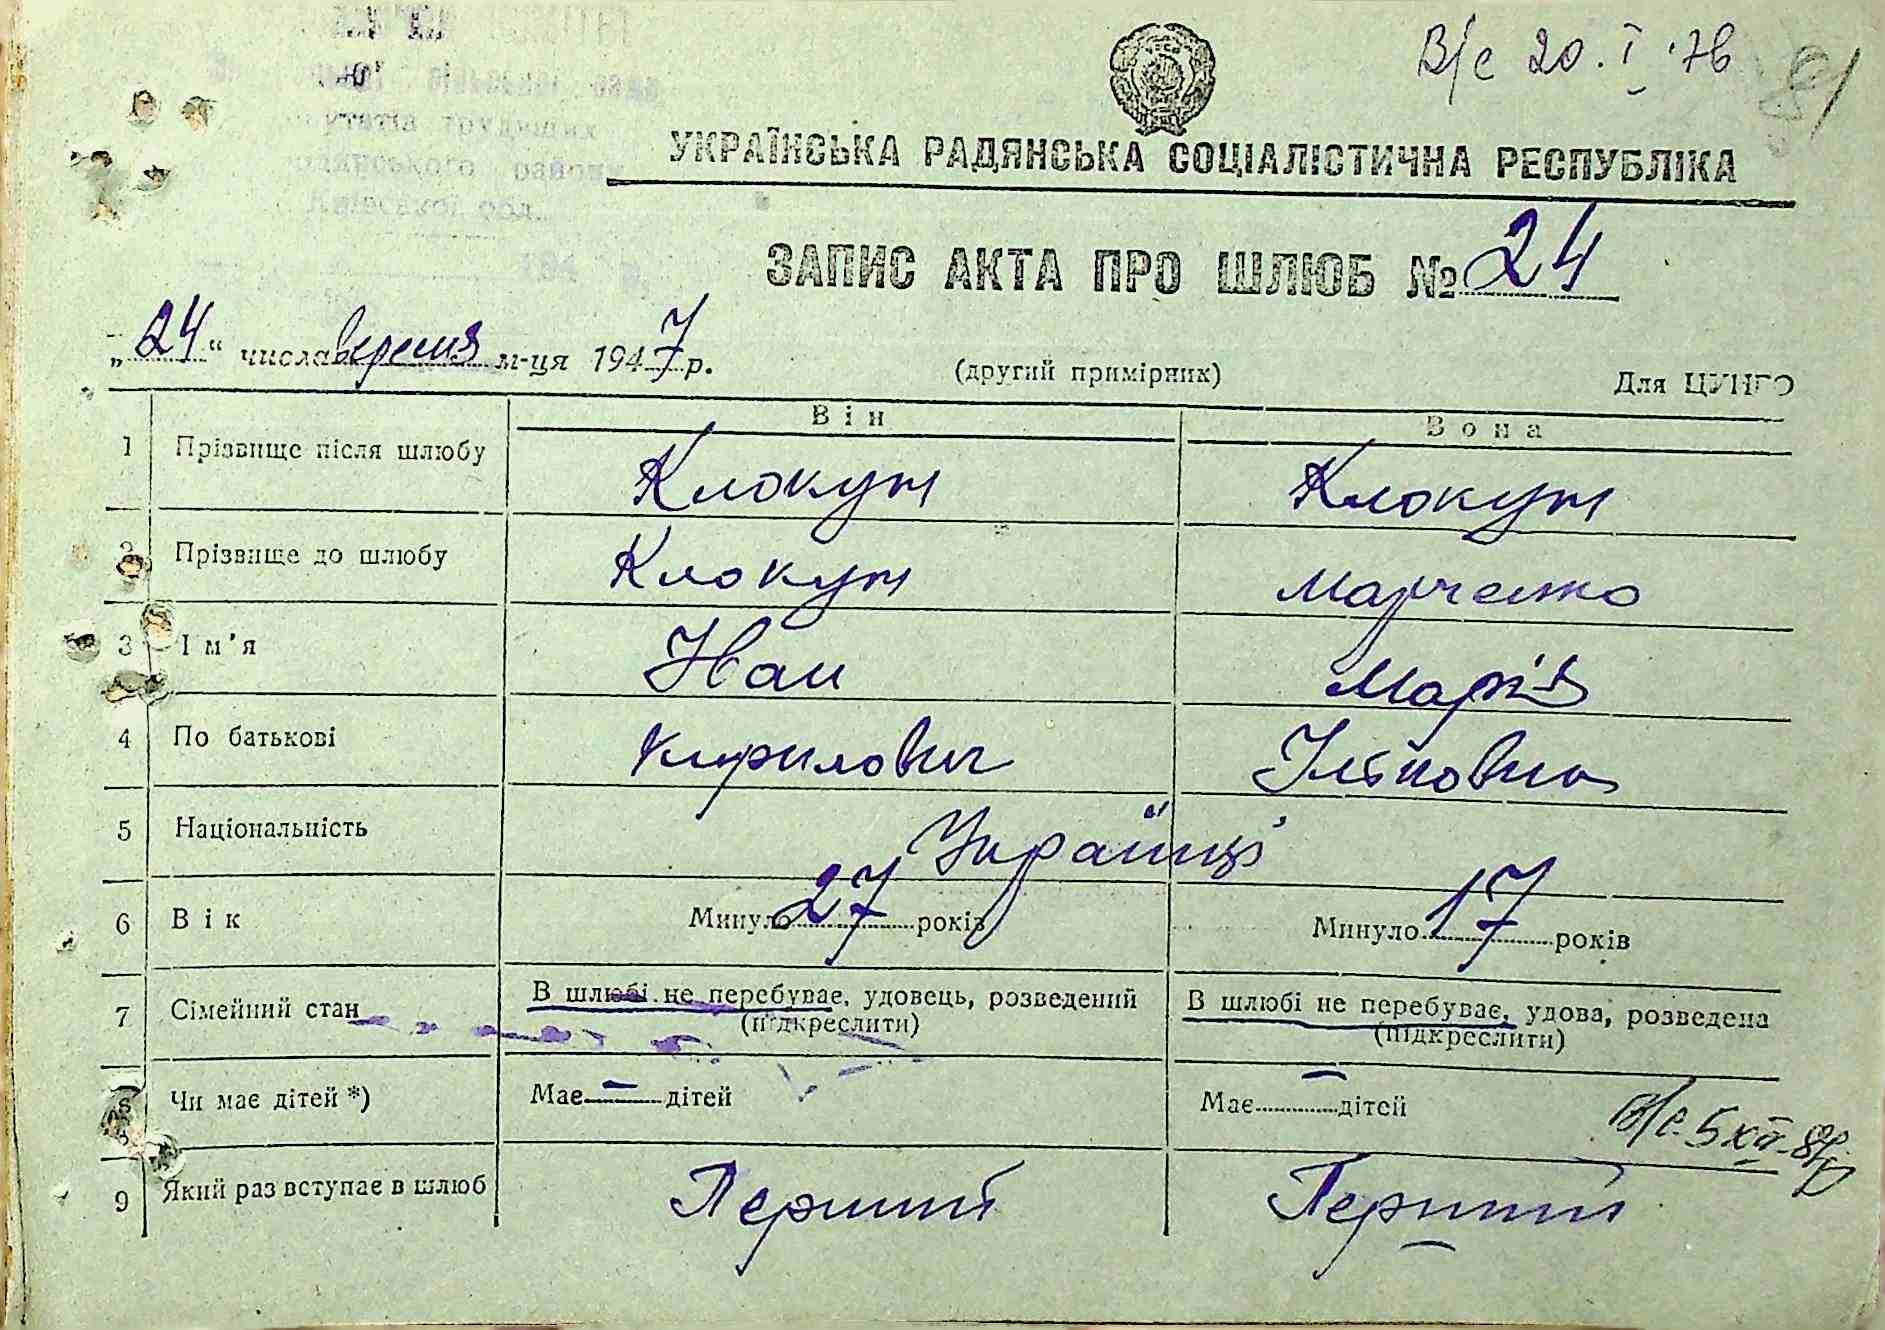 В/с 20.I.76
81
УКРАЇНСЬКА РАДЯНСЬКА СОЦІАЛІСТИЧНА РЕСПУБЛІКА
ЗАПИС АКТА ПРО ШЛЮБ № 24
„24“ числа вересня м-ця 1947 р.
(другий примірник)
Для ЦУНГО
Він
Вона
1 Прізвище після шлюбу Клокун Клокун
2 Прізвище до шлюбу Клокун Марченко
3 Ім'я Иван Марія
4 По батькові Кирилович Ільковна
5 Національність Українці
6 Вік Минуло 27 років Минуло 17 років
7 Сімейний стан В шлюбі не перебуває, удовець, розведений В шлюбі не перебуває, удова, розведена
(підкреслити) (підкреслити)
8 Чи має дітей *) Має — дітей Має — дітей
В/с 5 XII
9 Який раз вступає в шлюб Перший Перший